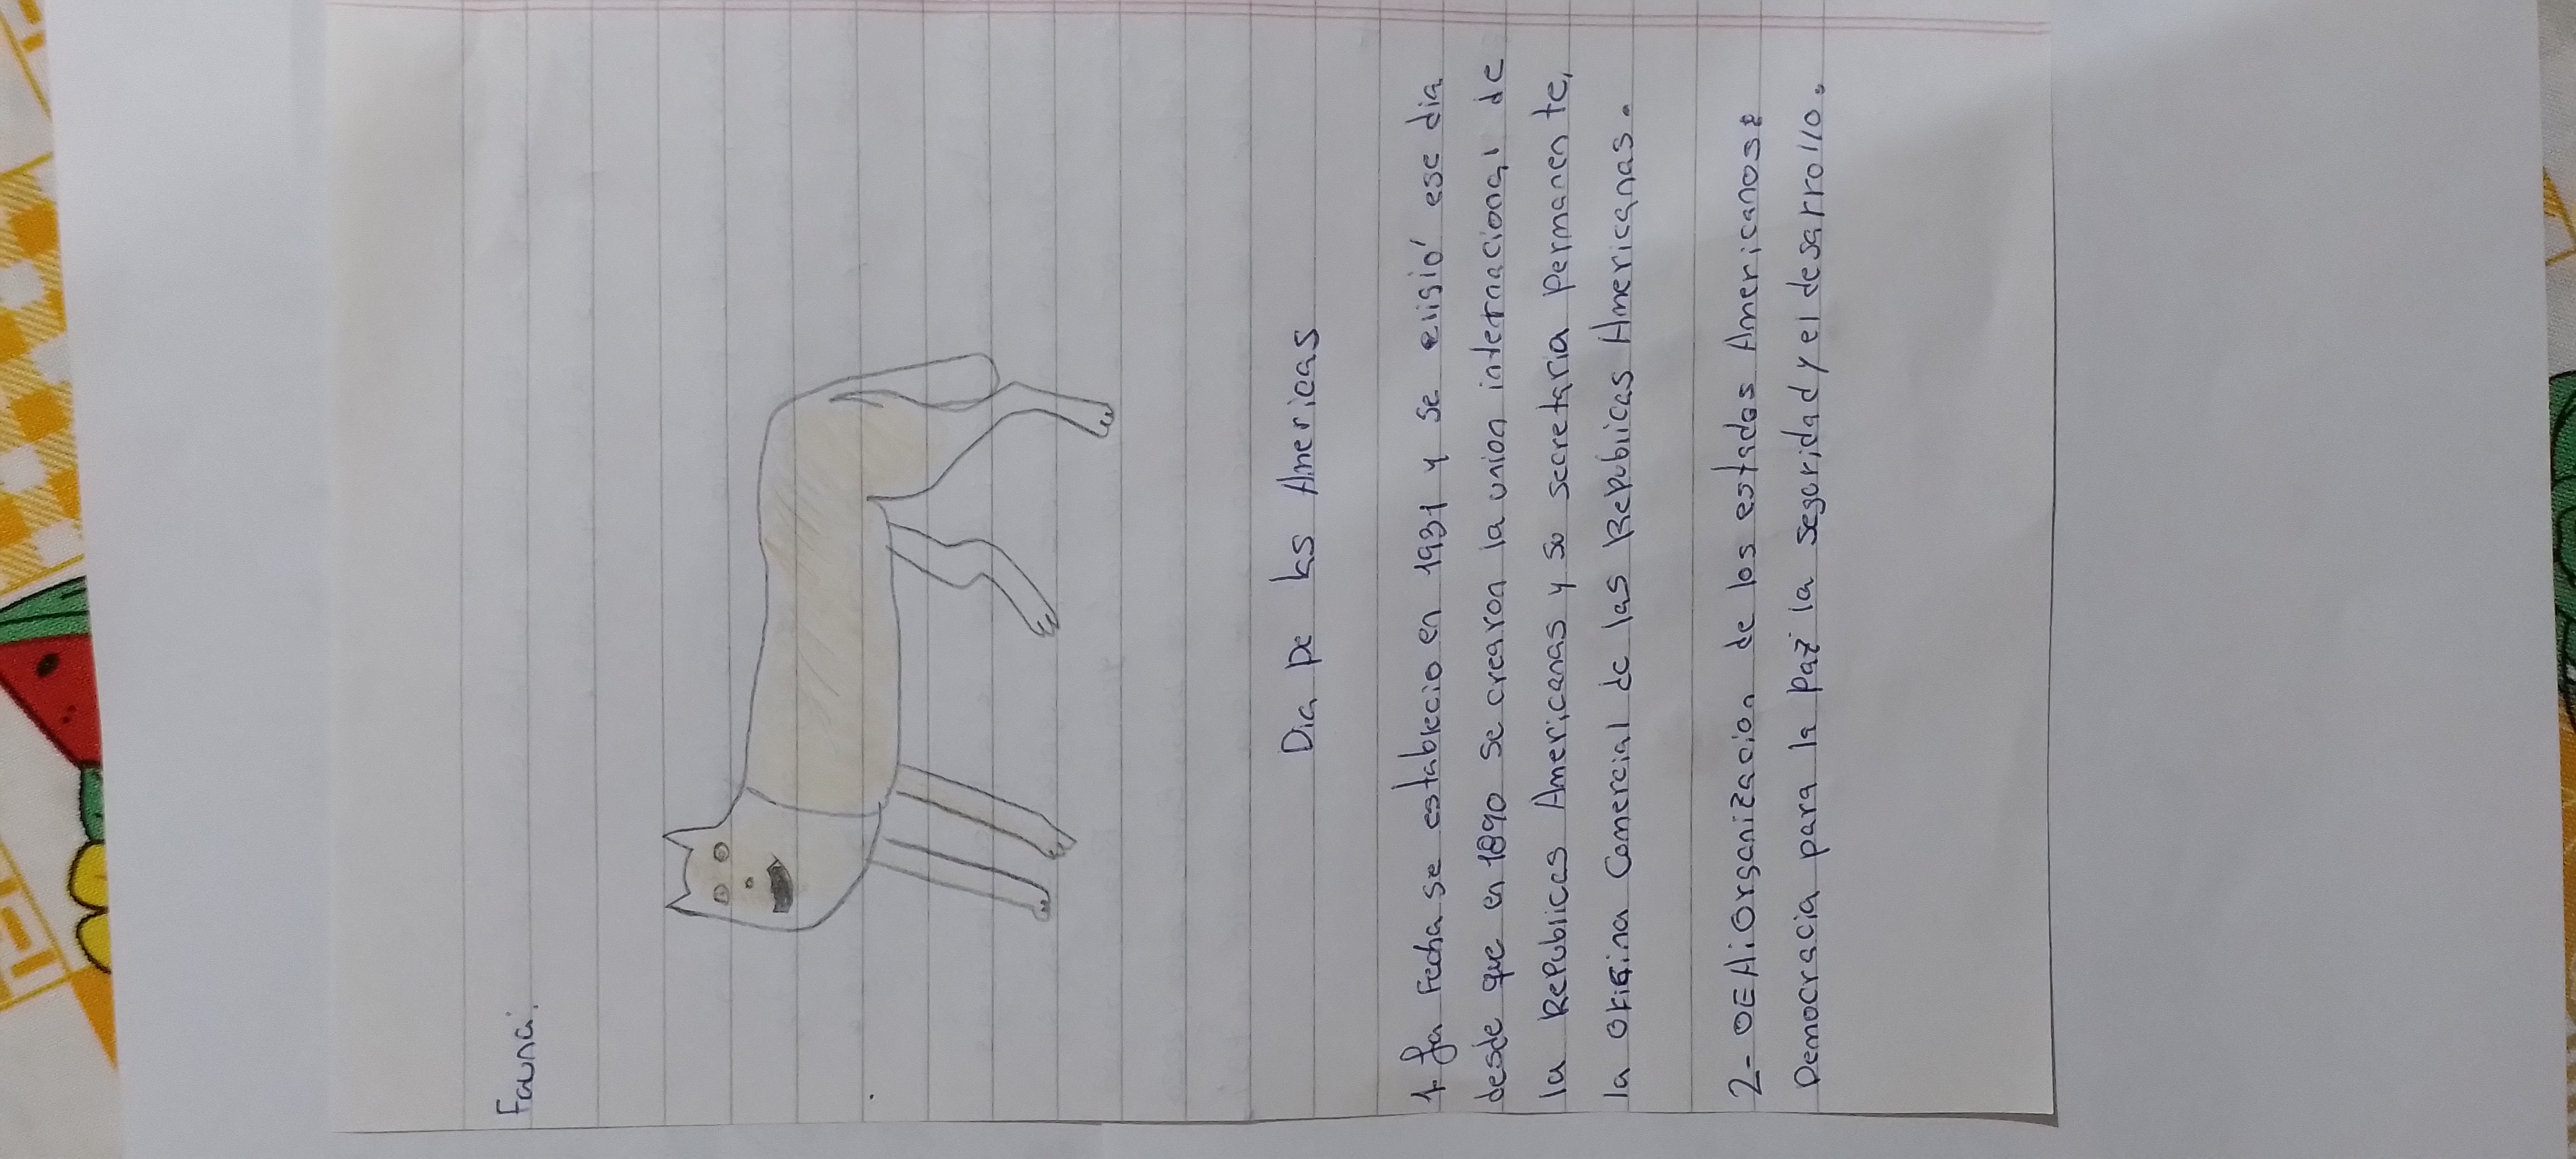 Fauna:
Dia De las Americas
1- La Fecha se establecio en 1931 y se elisió ese dia
desde que en 1890 se crearon la union internacional de
la Republicas Americanas y so secretaria Permanente,
la Orisina Comercial de las Republicas Americanas.
2- OEA: Organizacion de los estados Americanos:
Democracia para la Paz la seguridad y el desarrollo.